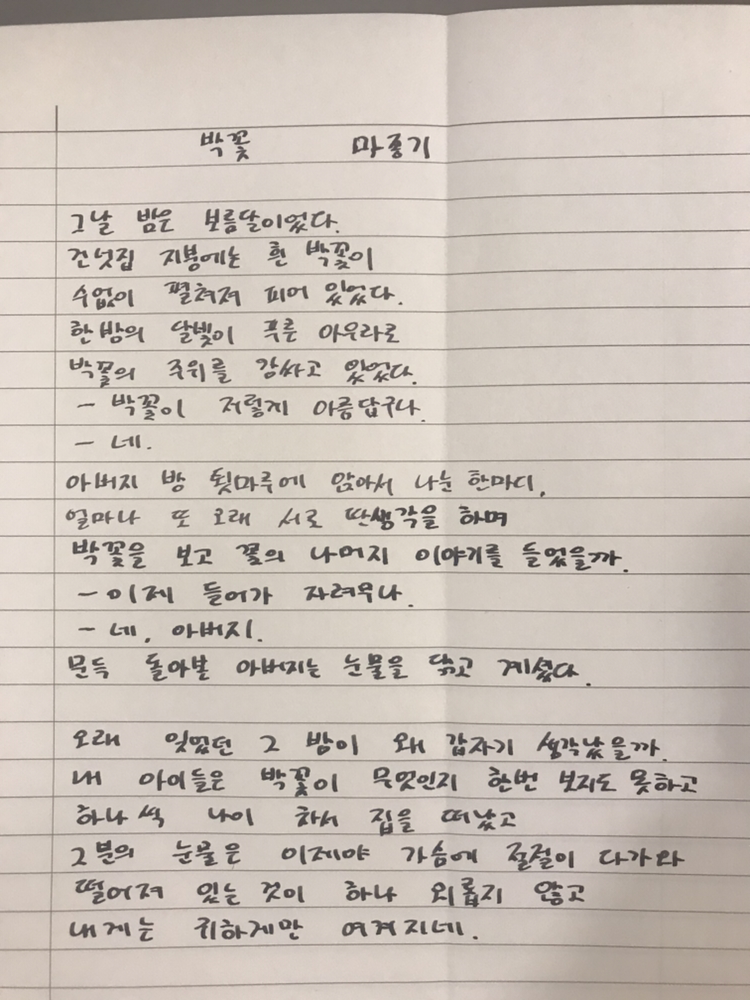 박꽃 마종기
그날 밤은 보름달이었다.
건넛집 지붕에는 흰 박꽃이
수없이 펼쳐져 피어 있었다.
한밤의 달빛이 푸른 아우라로
박꽃의 주위를 감싸고 있었다.
- 박꽃이 저렇게 아름답구나.
- 네.
아버지 방 툇마루에 앉아서 나눈 한마디,
얼마나 또 오래 서로 딴생각을 하며
박꽃을 보고 꽃의 나머지 이야기를 들었을까.
- 이제 들어가 자려무나.
- 네, 아버지.
문득 돌아본 아버지는 눈물을 닦고 계셨다.
오래 잊었던 그 밤이 왜 갑자기 생각났을까.
내 아이들은 박꽃이 무엇인지 한번 보지도 못하고
하나씩 나이 차서 집을 떠났고
그분의 눈물은 이제야 가슴에 절절이 다가와
떨어져 있는 것이 하나 외롭지 않고
내게는 귀하게만 여겨지네.